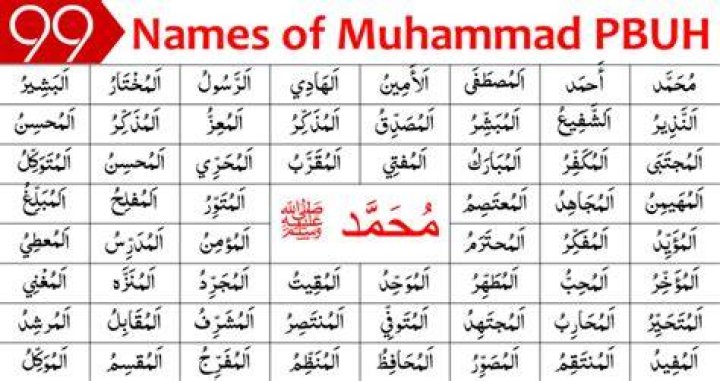 99 Names of Muhammad PBUH
مُحَمَّد أَحمَد اَلمُصطَفَى اَلأَمِينُ اَلهَادِي اَلرَّسُولُ اَلمُختَارُ اَلبَشِيرُ
اَلنَّذِيرُ اَلشَّفِيعُ اَلمُبَشِّرُ اَلمُصَدِّقُ اَلمُذَكِّرُ اَلمُعِزُّ اَلمُذَكِّرُ اَلمُحسِنُ
اَلمُجتَبَى اَلمُكَفِّرُ اَلمُبَارَكُ اَلمُفتِي اَلمُقَرَّبُ اَلمُحَرِّي اَلمُحسِنُ اَلمُتَوَكِّلُ
اَلمُهَيمِنُ اَلمُجَاهِدُ اَلمُعتَصِمُ اَلمُتَوِّرُ اَلمُفلِحُ اَلمُبَلِّغُ
مُحَمَّد ﷺ
اَلمُؤَيِّدُ اَلمُفَكِّرُ اَلمُحتَرَمُ اَلمُؤمِنُ اَلمُدَرِّسُ اَلمُعطِي
اَلمُؤَخِّرُ اَلمُحِبُّ اَلمُطَهِّرُ اَلمُوَحِّدُ اَلمُقِيتُ اَلمُجَرِّدُ اَلمُنَزَّه اَلمُغنِي
اَلمُتَحَيِّرُ اَلمُحَارِبُ اَلمُجتَهِدُ اَلمُتَوفِّي اَلمُنتَصِرُ اَلمُشَرِّفُ اَلمُقَابِلُ اَلمُرشِدُ
اَلمُفِيدُ اَلمُنتَقِمُ اَلمُصَوِّرُ اَلمُحَافِظُ اَلمُنَظِّمُ اَلمُفَرِّجُ اَلمُقسِمُ اَلمُوَكِّلُ